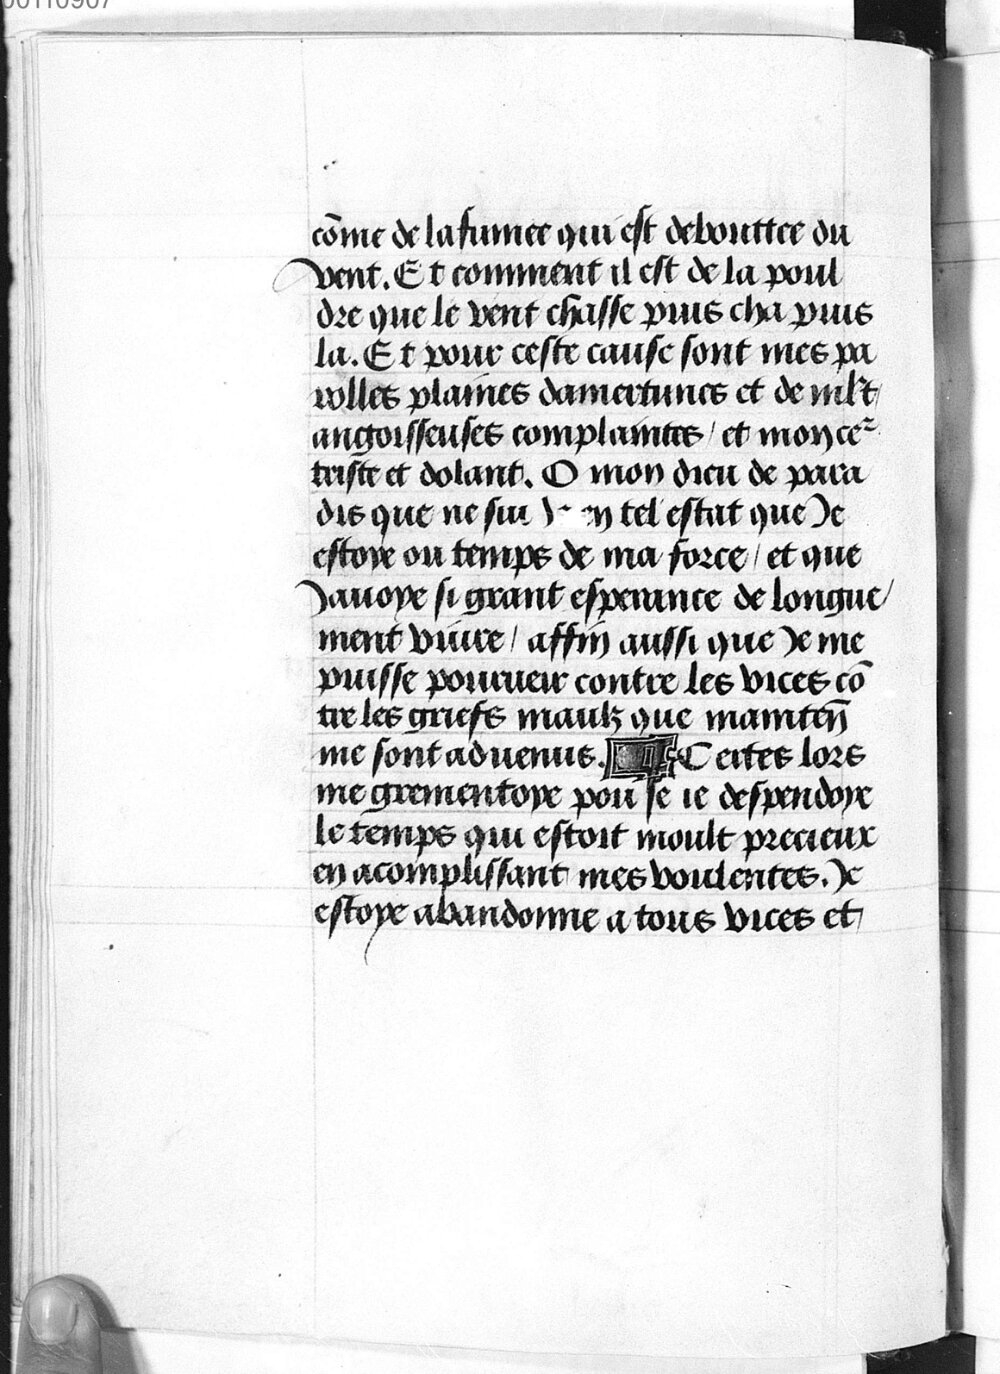 00110907
cōme de la fumee qui est debouttee du
vent. Et comment il est de la poul
dre que le vent chasse puis cha puis
la. Et pour ceste cause sont mes pa
rolles plaines damertunes et de
angoisseuses complaintes / et mon ce²
triste et dolant. O mon dieu de para
dis que ne sui en tel estat que Je
estoye ou temps de ma force / et que
Javoye si grant esperance de longue/
ment viure / affin aussi que Je me
puisse pourueir contre les vices cō
tre les griefs maulz que mainten̄
me sont aduenus. Certes lors
me grementoye pou se ie despendoye
le temps qui estoit moult precieux
en acomplissant mes voulentes. Je
estoye abandonne a tous vices et